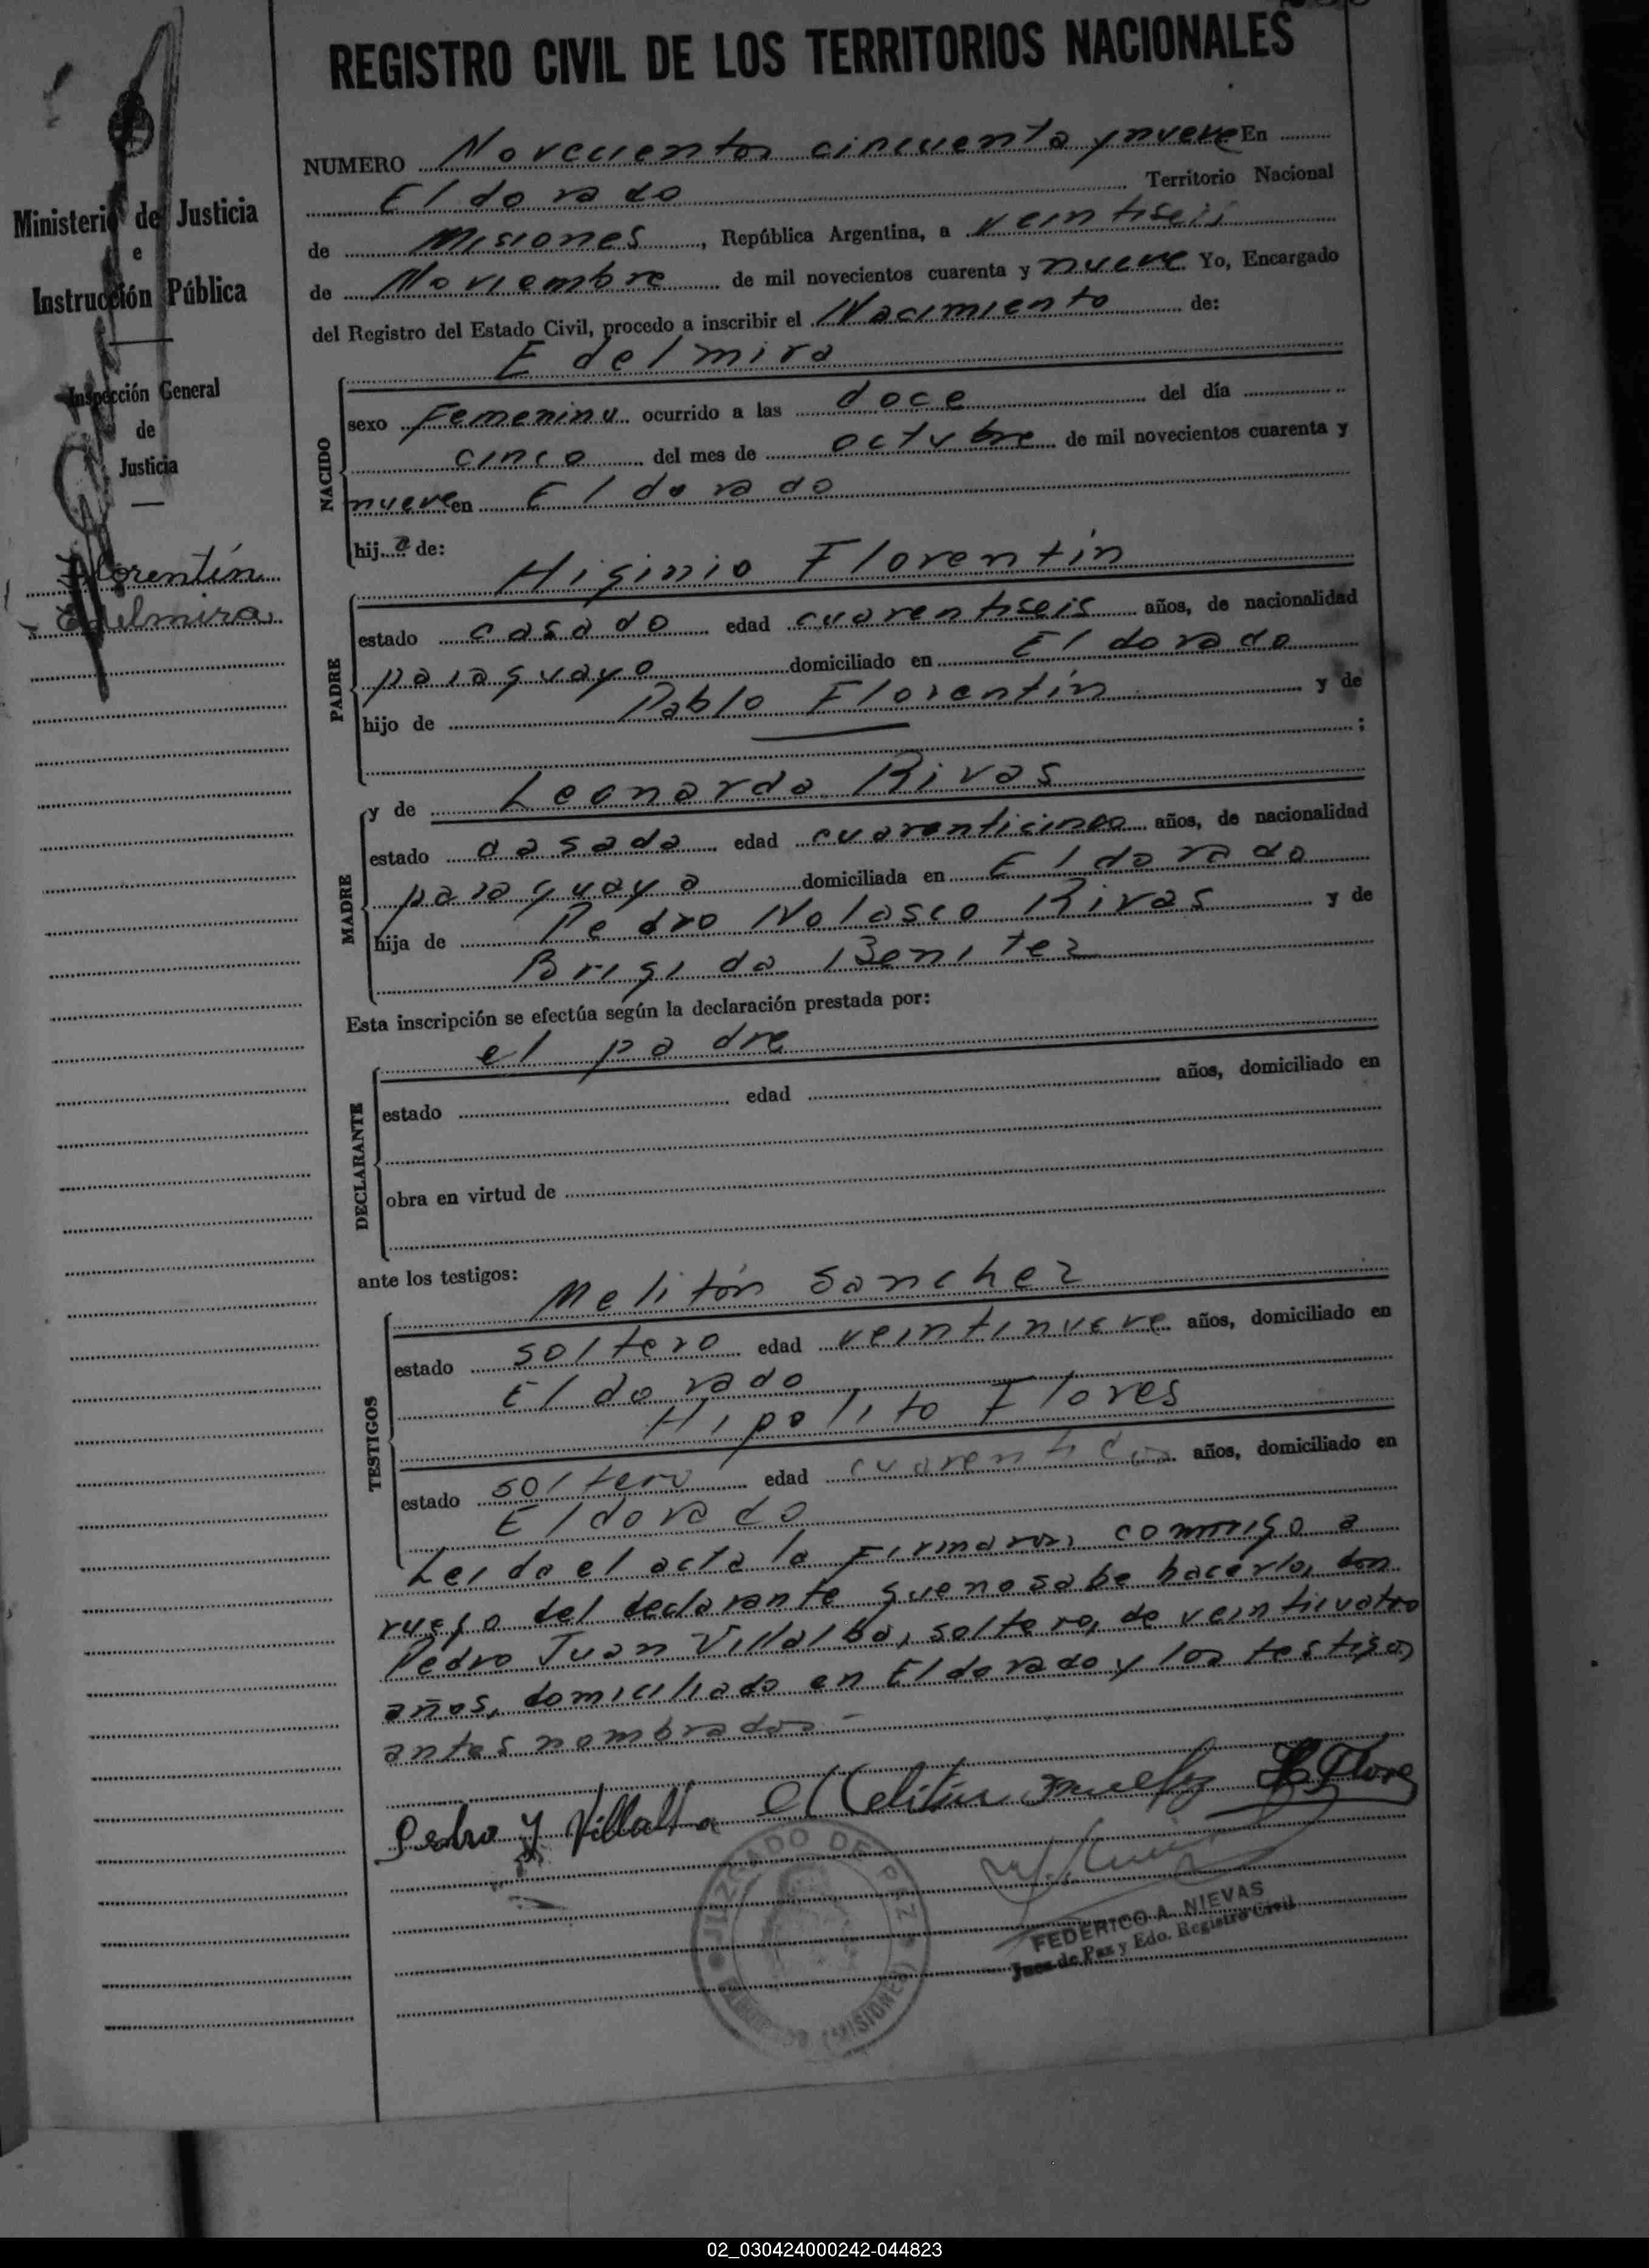 REGISTRO CIVIL DE LOS TERRITORIOS NACIONALES
Ministerio de Justicia
e
Instrucción Pública
Inspección General
de
Justicia
Florentín
Edelmira
NUMERO Novecientos cincuenta y nueve En
Eldorado Territorio Nacional
de Misiones, República Argentina, a veintiseis
de Noviembre de mil novecientos cuarenta y nueve Yo, Encargado
del Registro del Estado Civil, procedo a inscribir el Nacimiento de:
Edelmira
NACIDO
sexo Femenino ocurrido a las doce del día
cinco del mes de octubre de mil novecientos cuarenta y
nueve en Eldorado
hija de:
Higinio Florentín
PADRE
estado casado edad cuarentiseis años, de nacionalidad
paraguayo domiciliado en Eldorado
hijo de Pablo Florentín y de
;
y de Leonarda Rivas
MADRE
estado casada edad cuarenticinco años, de nacionalidad
paraguaya domiciliada en Eldorado
hija de Pedro Nolasco Rivas y de
Brigida Benitez
Esta inscripción se efectúa según la declaración prestada por:
el padre
DECLARANTE
estado edad años, domiciliado en
obra en virtud de
ante los testigos:
Melitón Sanchez
TESTIGOS
estado soltero edad veintinueve años, domiciliado en
Eldorado
Hipolito Flores
estado soltero edad cuarentidos años, domiciliado en
Eldorado
Leida el acta la firmaron conmigo a
ruego del declarante que no sabe hacerlo, don
Pedro Juan Villalba, soltero, de veinticuatro
años, domiciliado en Eldorado y los testigos
antes nombrados -
Pedro J Villalba Meliton H Flores
JUZGADO DE PAZ
ELDORADO (MISIONES)
FEDERICO A. NIEVAS
Juez de Paz y Edo. Registro Civil
02_030424000242-044823